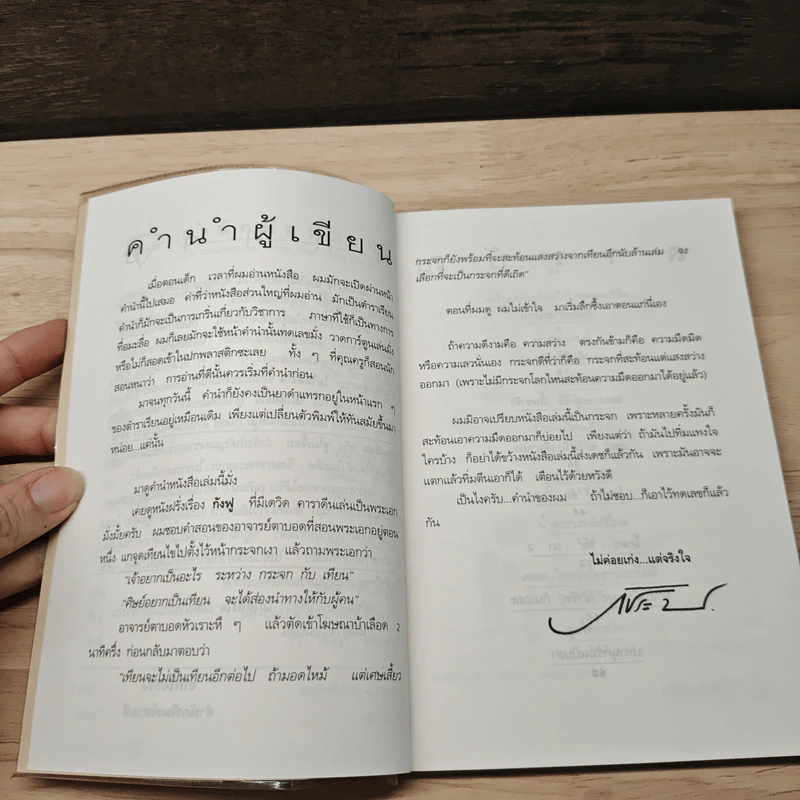 คำนำผู้เขียน
เมื่อตอนเด็ก เวลาที่ผมอ่านหนังสือ ผมมักจะเปิดผ่านหน้า
คำนำนี้ไปเสมอ ค่าที่ว่าหนังสือส่วนใหญ่ที่ผมอ่าน มักเป็นตำราเรียน
คำนำก็มักจะเป็นการเกริ่นเกี่ยวกับวิชาการ ภาษาที่ใช้ก็เป็นทางการ
ที่อมะลื่อ ผมก็เลยมักจะใช้หน้าคำนำนั้นทดเลขมั่ง วาดการ์ตูนเล่นมั่ง
หรือไม่ก็สอดเข้าในปกพลาสติกซะเลย ทั้ง ๆ ที่คุณครูก็สอนนัก
สอนหนาว่า การอ่านที่ดีนั้นควรเริ่มที่คำนำก่อน
มาจนทุกวันนี้ คำนำก็ยังคงเป็นยาดำแทรกอยู่ในหน้าแรก ๆ
ของตำราเรียนอยู่เหมือนเดิม เพียงแต่เปลี่ยนตัวพิมพ์ให้ทันสมัยขึ้นมา
หน่อย...แค่นั้น
มาดูคำนำหนังสือเล่มนี้มั่ง
เคยดูหนังฝรั่งเรื่อง กังฟู ที่มีเดวิด คาราดีนเล่นเป็นพระเอก
มั่งมั้ยครับ ผมชอบคำสอนของอาจารย์ตาบอดที่สอนพระเอกอยู่ตอน
หนึ่ง แกจุดเทียนไขไปตั้งไว้หน้ากระจกเงา แล้วถามพระเอกว่า
"เจ้าอยากเป็นอะไร ระหว่าง กระจก กับ เทียน"
"ศิษย์อยากเป็นเทียน จะได้ส่องนำทางให้กับผู้คน"
อาจารย์ตาบอดหัวเราะหึ ๆ แล้วตัดเข้าโฆษณาบ้าเลือด 2
นาทีครึ่ง ก่อนกลับมาตอบว่า
"เทียนจะไม่เป็นเทียนอีกต่อไป ถ้ามอดไหม้ แต่เศษเสี้ยว
กระจกก็ยังพร้อมที่จะสะท้อนแสงสว่างจากเทียนอีกนับล้านเล่ม จง
เลือกที่จะเป็นกระจกที่ดีเถิด"
ตอนที่ผมดู ผมไม่เข้าใจ มาเริ่มลึกซึ้งเอาตอนแก่นี่เอง
ถ้าความดีงามคือ ความสว่าง ตรงกันข้ามก็คือ ความมืดมิด
หรือความเลวนั่นเอง กระจกดีที่ว่าก็คือ กระจกที่สะท้อนแต่แสงสว่าง
ออกมา (เพราะไม่มีกระจกโลกไหนสะท้อนความมืดออกมาได้อยู่แล้ว)
ผมมิอาจเปรียบหนังสือเล่มนี้เป็นกระจก เพราะหลายครั้งมันก็
สะท้อนเอาความมืดออกมาก็บ่อยไป เพียงแต่ว่า ถ้ามันไปทิ่มแทงใจ
ใครบ้าง ก็อย่าได้ขว้างหนังสือเล่มนี้ส่งเดชก็แล้วกัน เพราะมันอาจจะ
แตกแล้วทิ่มตีนเอาก็ได้ เตือนไว้ด้วยหวังดี
เป็นไงครับ...คำนำของผม ถ้าไม่ชอบ...ก็เอาไว้ทดเลขก็แล้ว
กัน
ไม่ค่อยเก่ง...แต่จริงใจ